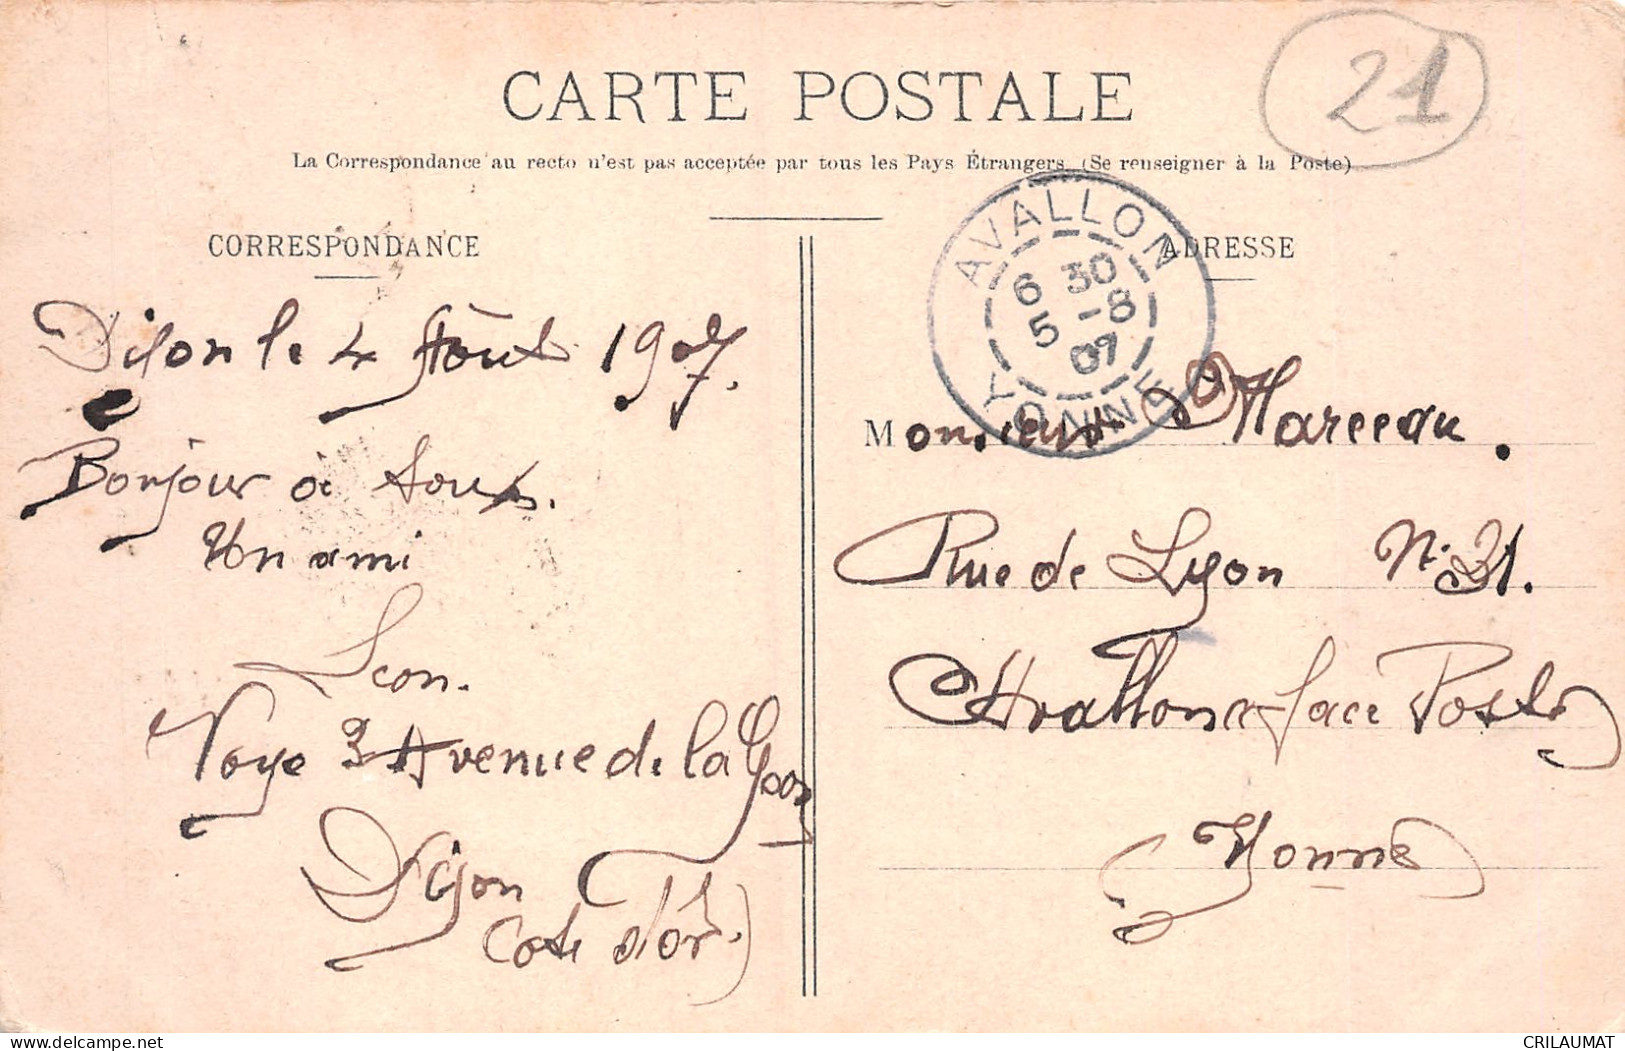 21
CARTE POSTALE
La Correspondance au recto n'est pas acceptée par tous les Pays Étrangers. (Se renseigner à la Poste)
CORRESPONDANCE
Dijon le 4 Août 1907.
Bonjour à tous.
Un ami
Leon.
Voye 3 Avenue de la
Dijon
Cote d'or.)
ADRESSE
AVALLON
6 30
5 -8
07
YONNE
Monsieur Marceau.
Rue de Lyon N. 31.
Avallon face Poste
Yonne
CRILAUMAT